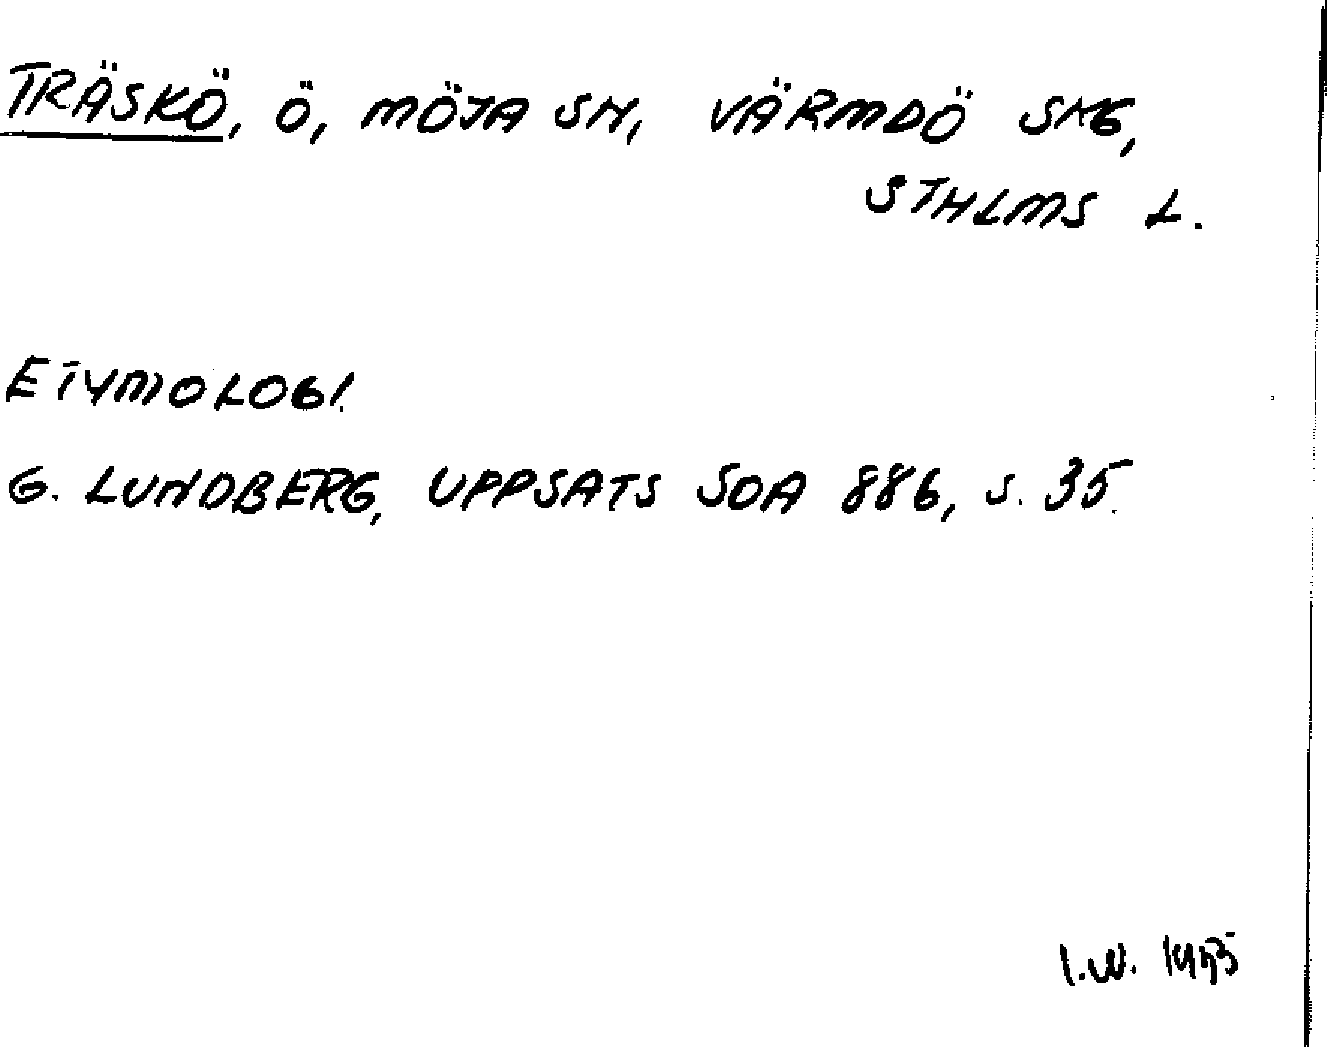 TRÄSKÖ, Ö, MÖJA SN, VÄRMDÖ SKG,
STHLMS L.
ETYMOLOGI.
G. LUNDBERG, UPPSATS SOA 886, S. 35.
I.W.